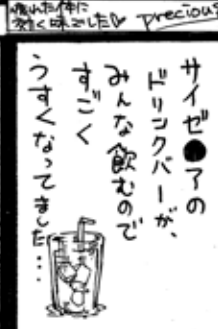 疲れた体に
効く味でした♡
precious
サイゼ●アの
ドリンクバーが、
みんな飲むので
すごく
うすくなってました…